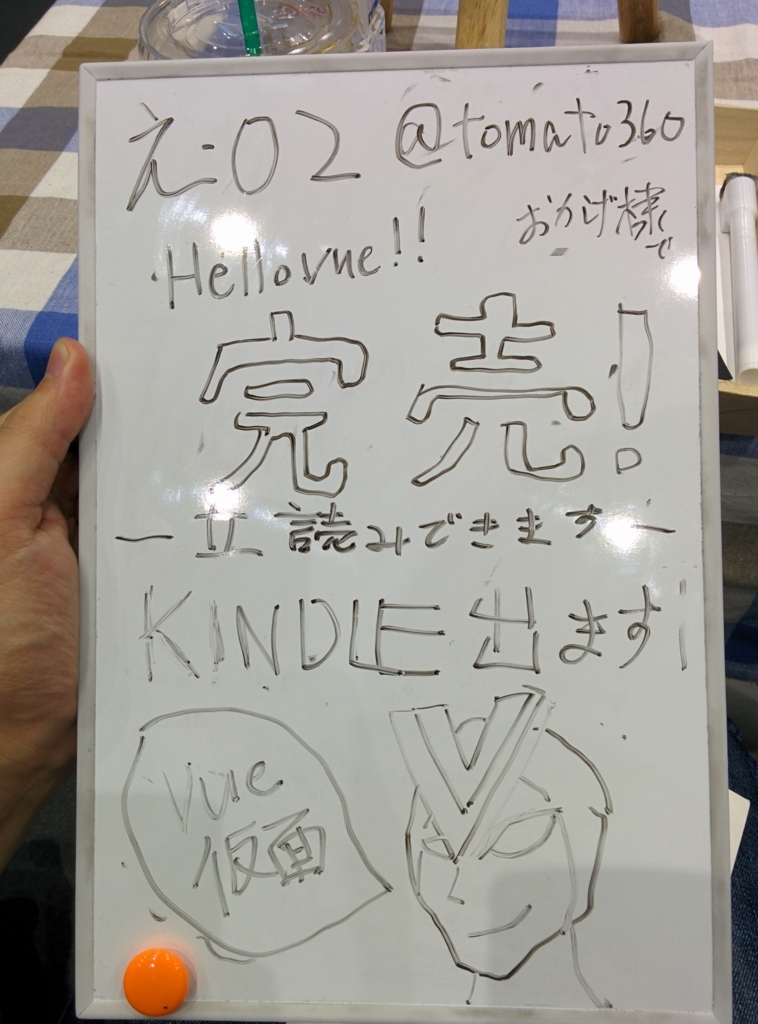 え:02 @tomato360
おかげ様で
Hello vue!!
完売!
ー立読みできますー
KINDLE出ます!
vue
仮面